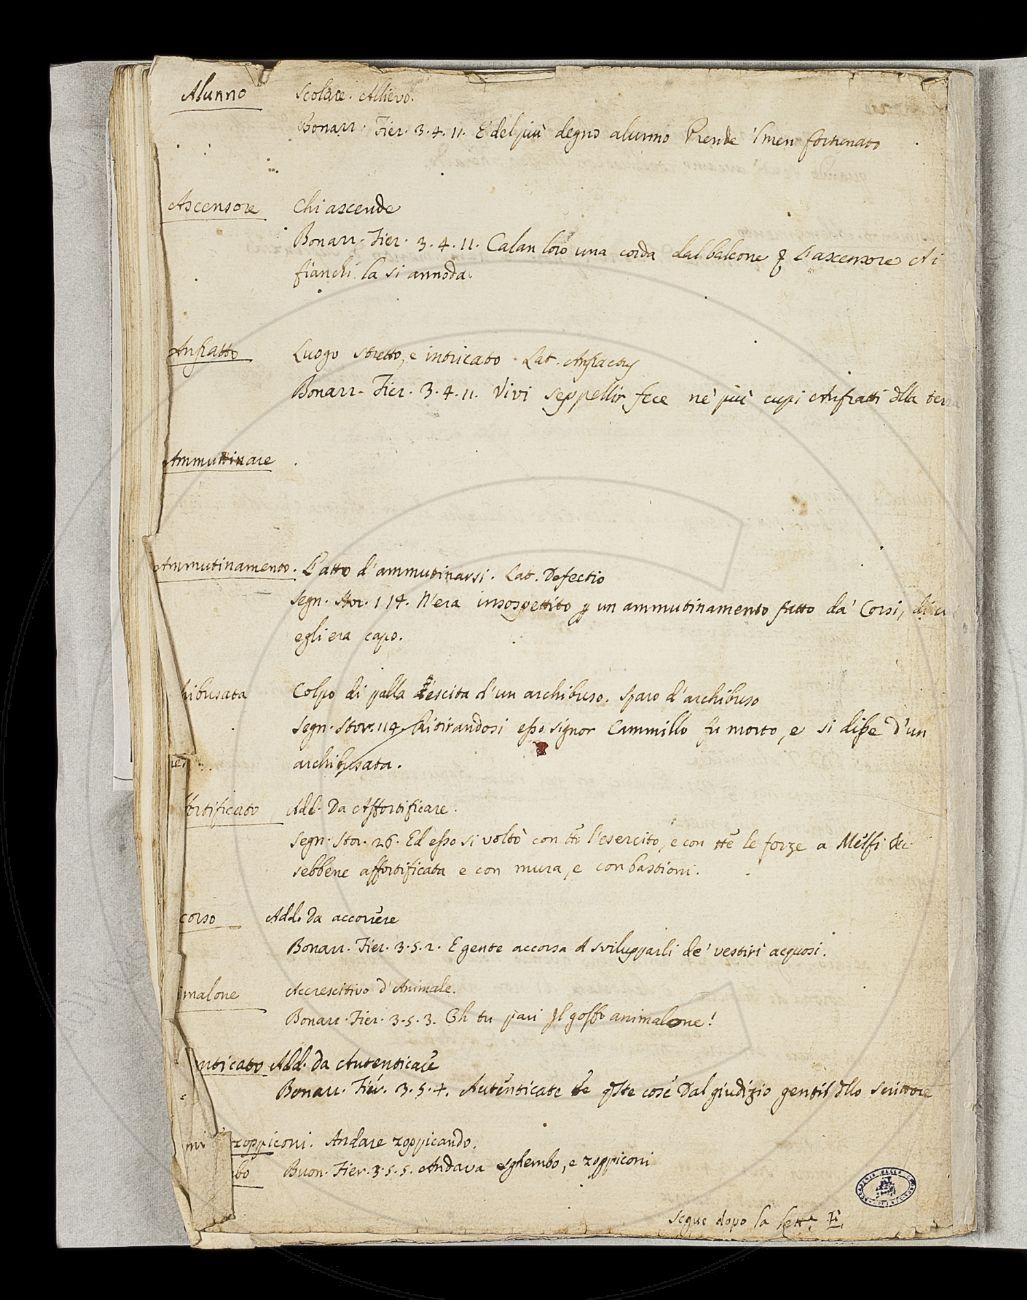 Alunno Scolare. Allievo.
Bonarr. Fier. 3. 4. 11. E del più degno alunno Prende 'l men fortunato
Ascensore Chi ascende
Bonarr. Fier. 3. 4. 11. Calan loro una corda dal balcone L'ascensore
fianchi la si annoda.
Anfratto Luogo stretto, e intricato. Lat. Anfractus
Bonarr. Fier. 3. 4. 11. Vivi seppellir fece ne' più cupi Anfratti dlla terra
Ammuttinare.
Ammutinamento. L'atto d'ammutinarsi. Lat. Defectio
Segn. Stor. 114. N'era insospettito p un ammutinamento fatto da' Corsi, di cui
egli era capo.
hibusata Colpo di palla escita d'un archibuso. sparo d'archibuso
Segn. Stor. 119. Ritirandosi esso signor Cammillo fu morto, e si disse d'un
archibusata.
fortificato Add. Da Affortificare.
Segn. Stor. 26. Ed esso si voltò con tto l'esercito, e con tte le forze a Melfi &c.
sebbene affortificata e con mura, e con bastioni.
corso Add. Da accorrere
Bonarr. Fier. 3. 5. 2. E gente accorsa A svilupparli de' vestiri acquosi.
malone Accrescitivo d'Animale.
Bonarr. Fier. 3. 5. 3. Oh tu pari Il goffo animalone!
nticato Add. da Autenticare
Bonarr. Fier. 3. 5. 4. Autenticate qste cose Dal giudizio gentil dllo Scrittore
zoppiconi. Andare zoppicando.
bo Buon. Fier. 3. 5. 5. Andava sghembo, e zoppiconi
segue dopo la lett.a E.